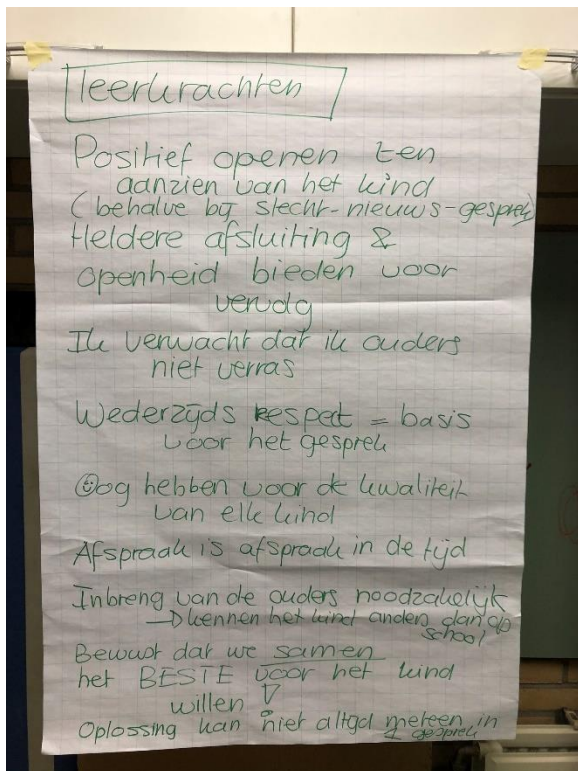 leerkrachten
Positief openen ten
aanzien van het kind
(behalve bij slecht-nieuws-gesprek)
Heldere afsluiting &
openheid bieden voor
vervolg
Ik verwacht dat ik ouders
niet verras
Wederzijds respect = basis
voor het gesprek
Oog hebben voor de kwaliteit
van elk kind
Afspraak is afspraak in de tijd
Inbreng van de ouders noodzakelijk
→ kennen het kind anders dan op
school
Bewust dat we samen
het BESTE voor het kind
willen
Oplossing kan niet altijd meteen in
1 gesprek